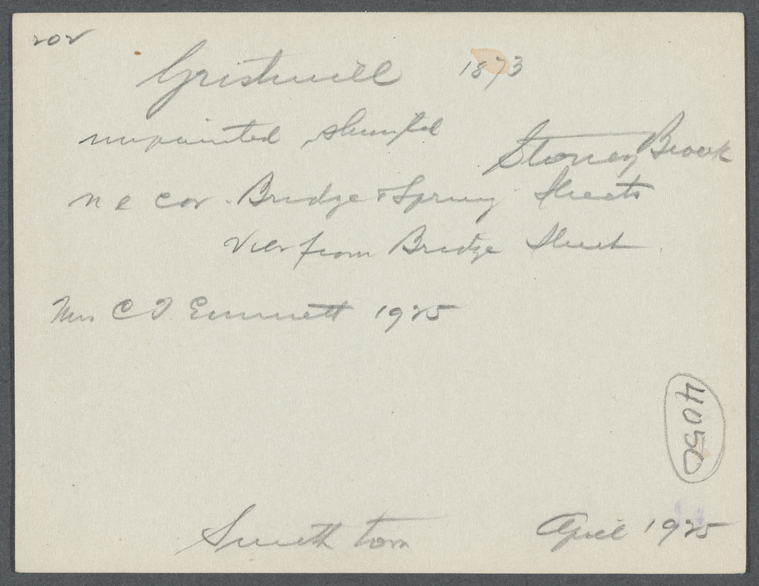 202
Gristmill 1873
unpainted shingled Stoney Brook
n e cor. Bridge & Spring Streets
View from Bridge Street
Mrs C T. Emmett 1925
4050
Smithtown April 1925